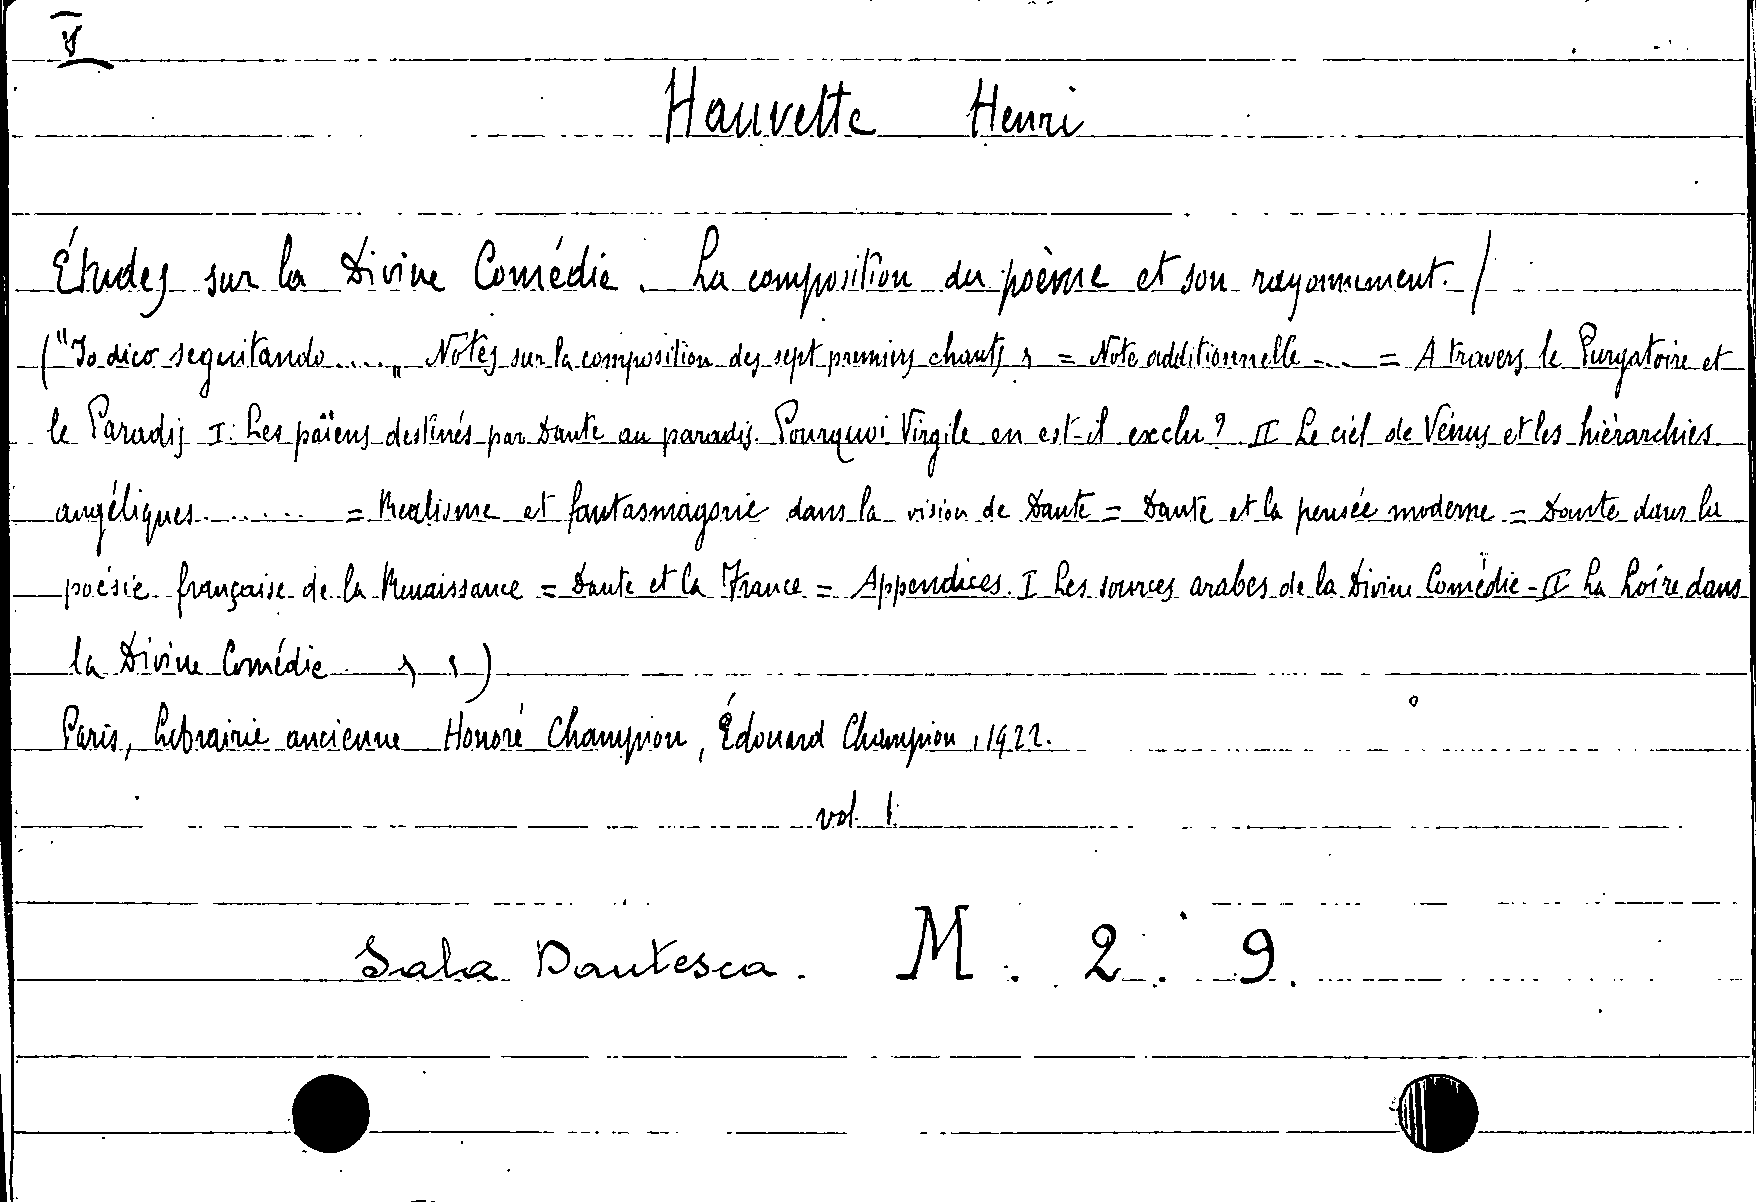 V
Hauvette Henri
Études sur la Divine Comédie. La composition du poème et son rayonnement. /
("Io dico seguitando ....„ Notes sur la composition des sept premiers chants = Note additionnelle ... = A travers le Purgatoire et
le Paradis I. Les païens destinés par Dante au paradis. Pourquoi Virgile en est-il exclu? II Le ciel de Vénus et les hiérarchies
angéliques ....... = Realisme et fantasmagorie dans la vision de Dante = Dante et la pensée moderne = Dante dans la
poésie française de la Renaissance = Dante et la France = Appendices. I Les sources arabes de la Divine Comédie - II La Loire dans
la Divine Comédie )
Paris, Librairie ancienne Honoré Champion, Édouard Champion, 1922.
vol. 1.
Sala Dantesca. M. 2. 9.